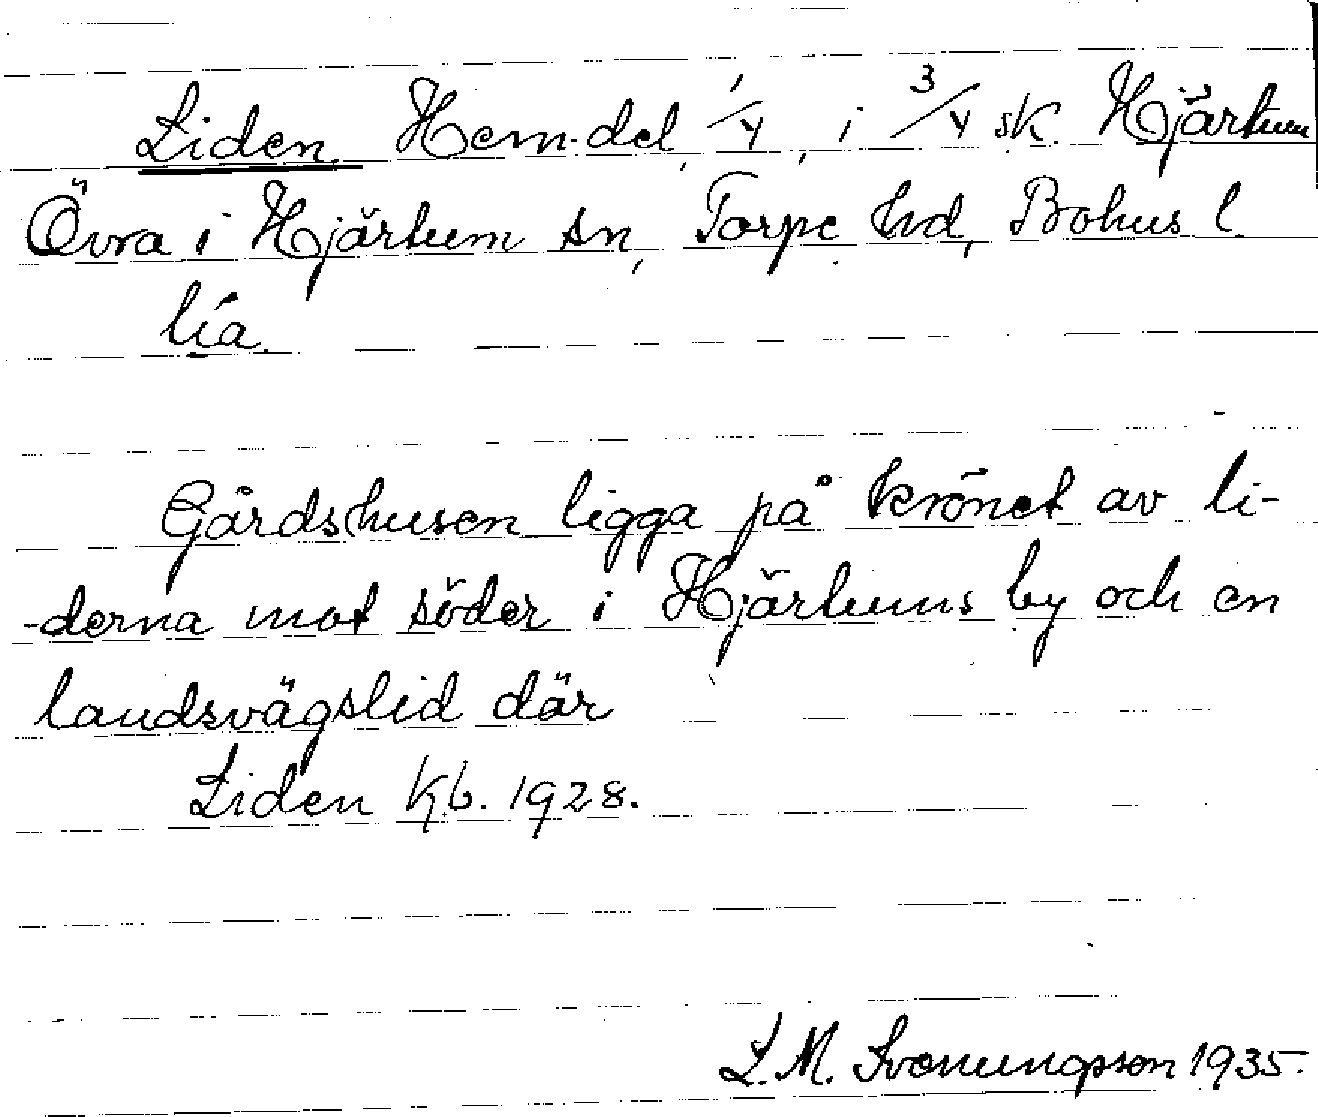 Liden Hem.del, 1/4, i 3/4 sk. Hjärtum
Övra i Hjärtum sn, Torpe hd, Bohus l.
lia.
Gårdshusen ligga på krönet av li-
-derna mot söder i Hjärtums by och en
landsvägslid där
Liden Kb. 1928.
L. M. Svenungsson 1935.